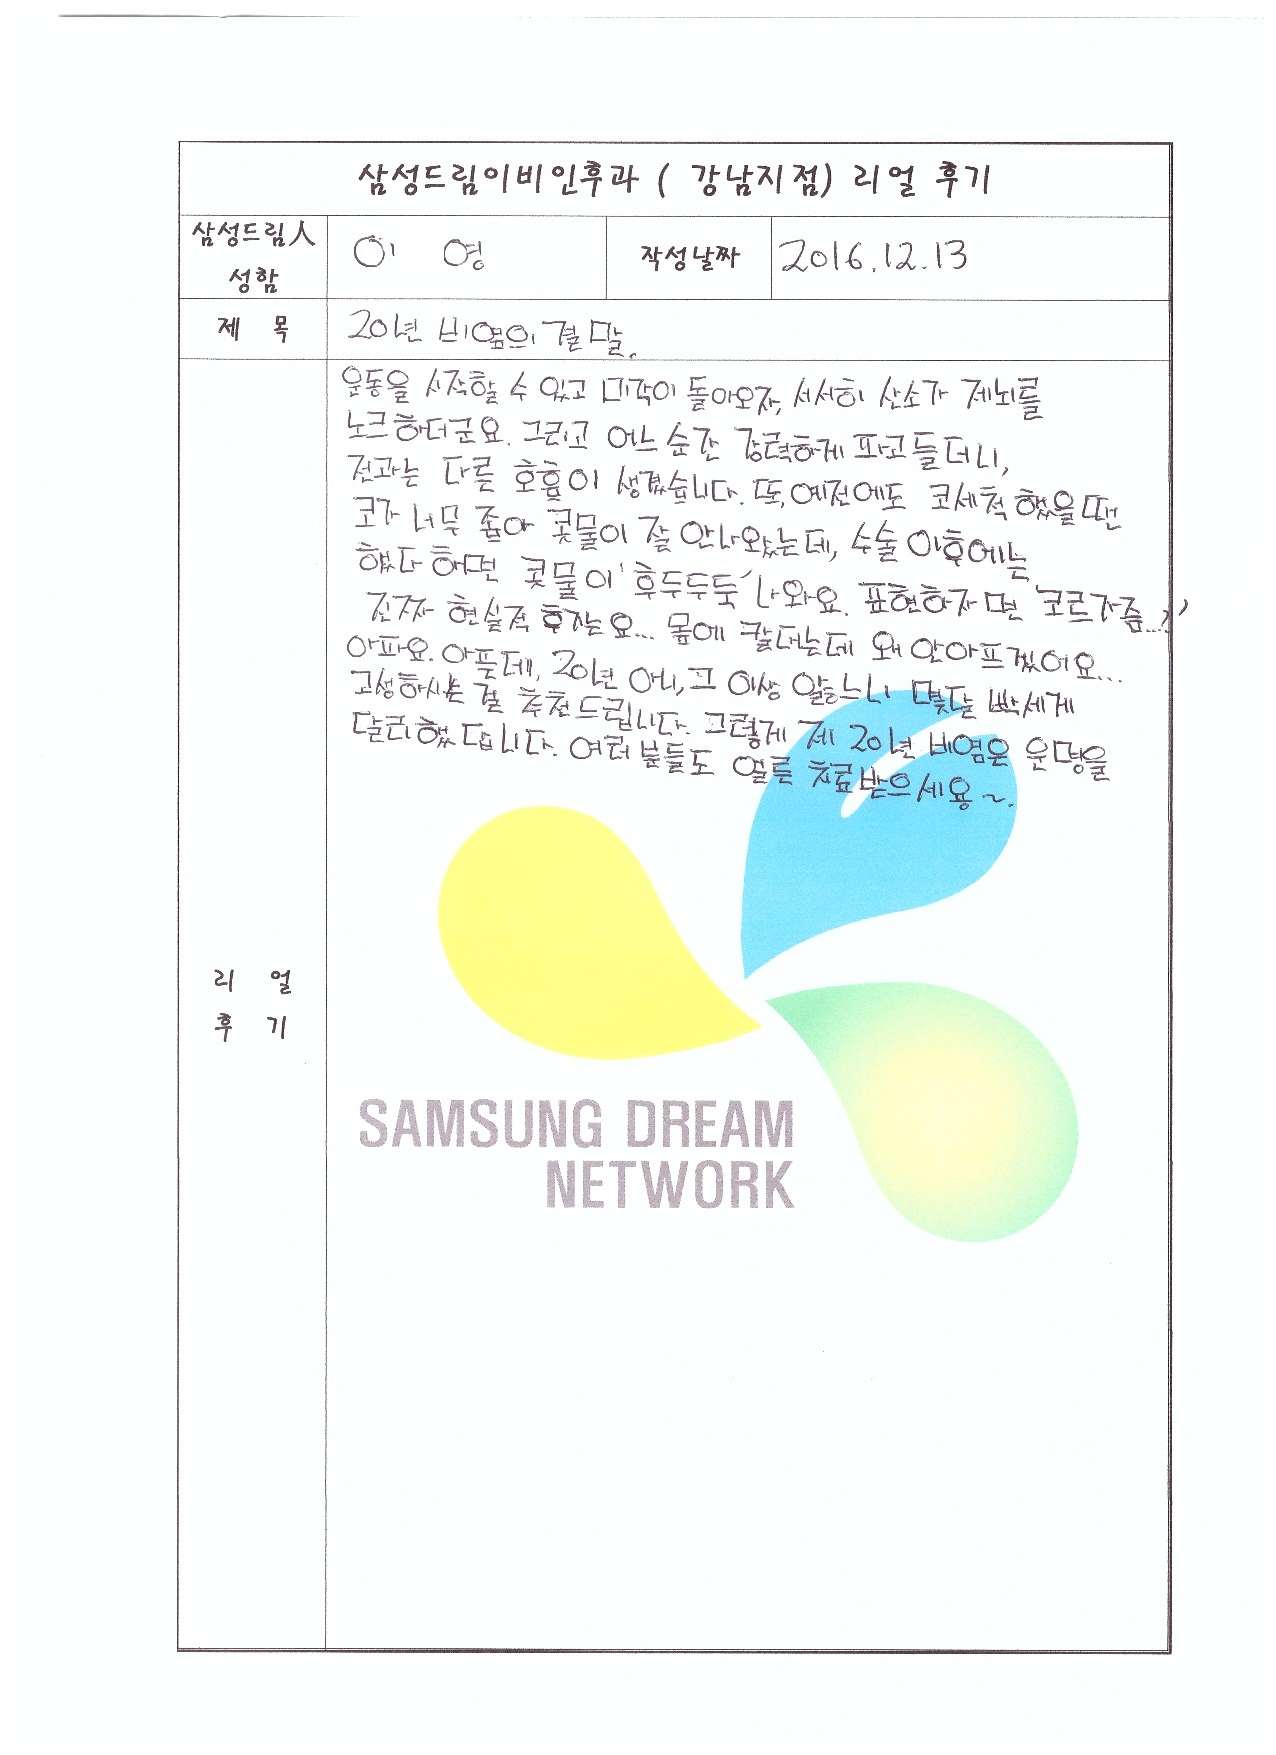 삼성드림이비인후과 ( 강남지점) 리얼 후기
삼성드림人 성함
이 영
작성날짜
2016.12.13
제 목
20년 비염의 결말.
리 얼 후 기
운동을 시작할 수 있고 미각이 돌아오자, 서서히 산소가 제뇌를
노크하더군요. 그리고 어느 순간 강력하게 파고들더니,
전과는 다른 호흡이 생겼습니다. 또, 예전에도 코세척 했을땐
코가 너무 좁아 콧물이 잘 안나왔는데, 수술 이후에는
했다 하면 콧물이 '후두두둑' 나와요. 표현하자면 '코르가즘...?'
진짜 현실적 후기는요... 몸에 칼대는데 왜 안아프겠어요...
아파요. 아픈데, 20년 아니, 그 이상 앓느니 몇달 빡세게
고생하시는 걸 추천드립니다. 그렇게 제 20년 비염은 운명을
달리했답니다. 여러분들도 얼른 치료받으세요~.
SAMSUNG DREAM
NETWORK